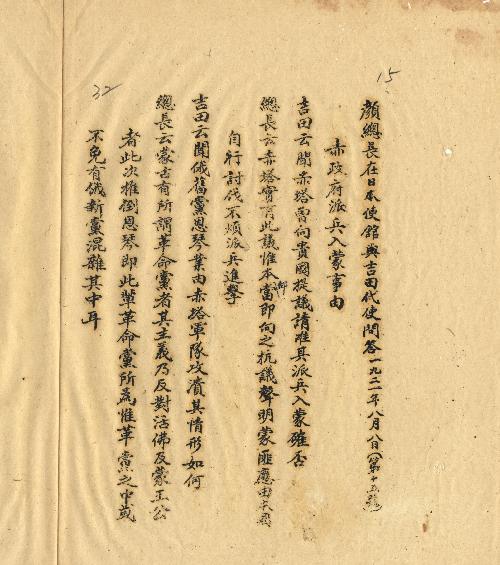 15
顏總長在日本使館與吉田代使問答一九二一年八月八日(第十五號)
赤政府派兵入蒙事由
吉田云聞赤塔曾向貴國提議請准其派兵入蒙確否
總長云赤塔實有此議惟本部當即向之抗議聲明蒙匪應由我國
自行討伐不煩派兵進擊
吉田云聞俄舊黨恩琴業由赤塔軍隊攻潰其情形如何
總長云蒙古有所謂革命黨者其主義乃反對活佛及蒙王公
者此次推倒恩琴即此輩革命黨所為惟革黨之中或
不免有俄新黨混雜其中耳
32